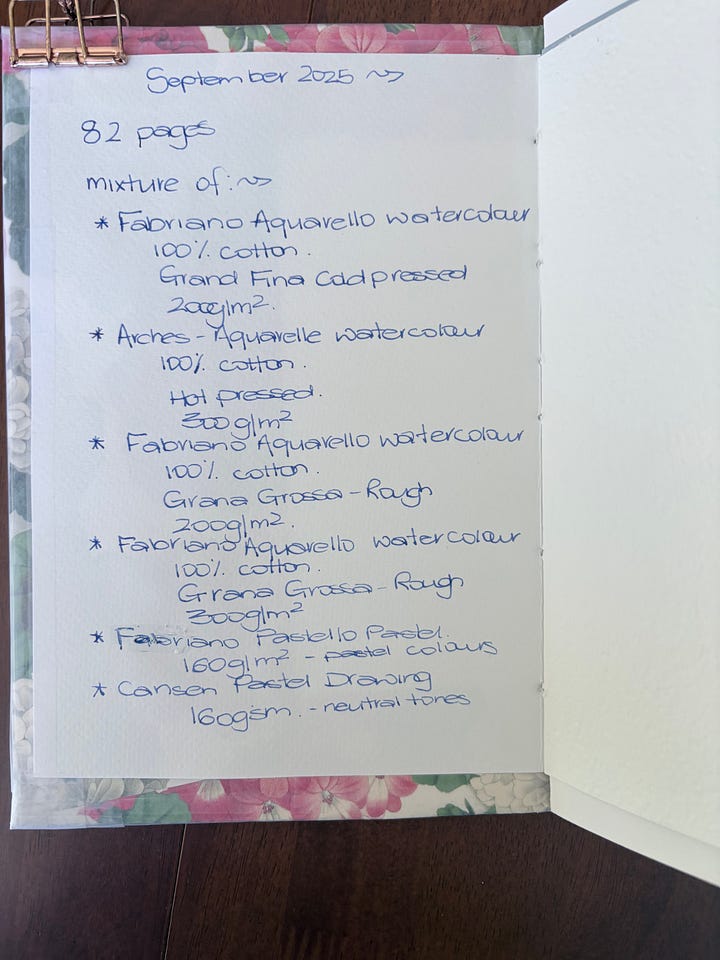 September 2025 ~>
82 pages
mixture of:~>
* Fabriano Aquarello watercolour
100% cotton.
Grand Fina Cold pressed
200g/m².
* Arches - Aquarelle watercolour
100% cotton.
Hot pressed.
300g/m²
* Fabriano Aquarello watercolour
100% cotton.
Grana Grossa - Rough
200g/m².
* Fabriano Aquarello watercolour
100% cotton.
Grana Grossa - Rough
300g/m²
* Fabriano Pastello Pastel.
160g/m² - pastel colours
* Cansen Pastel Drawing
160gsm. - neutral tones